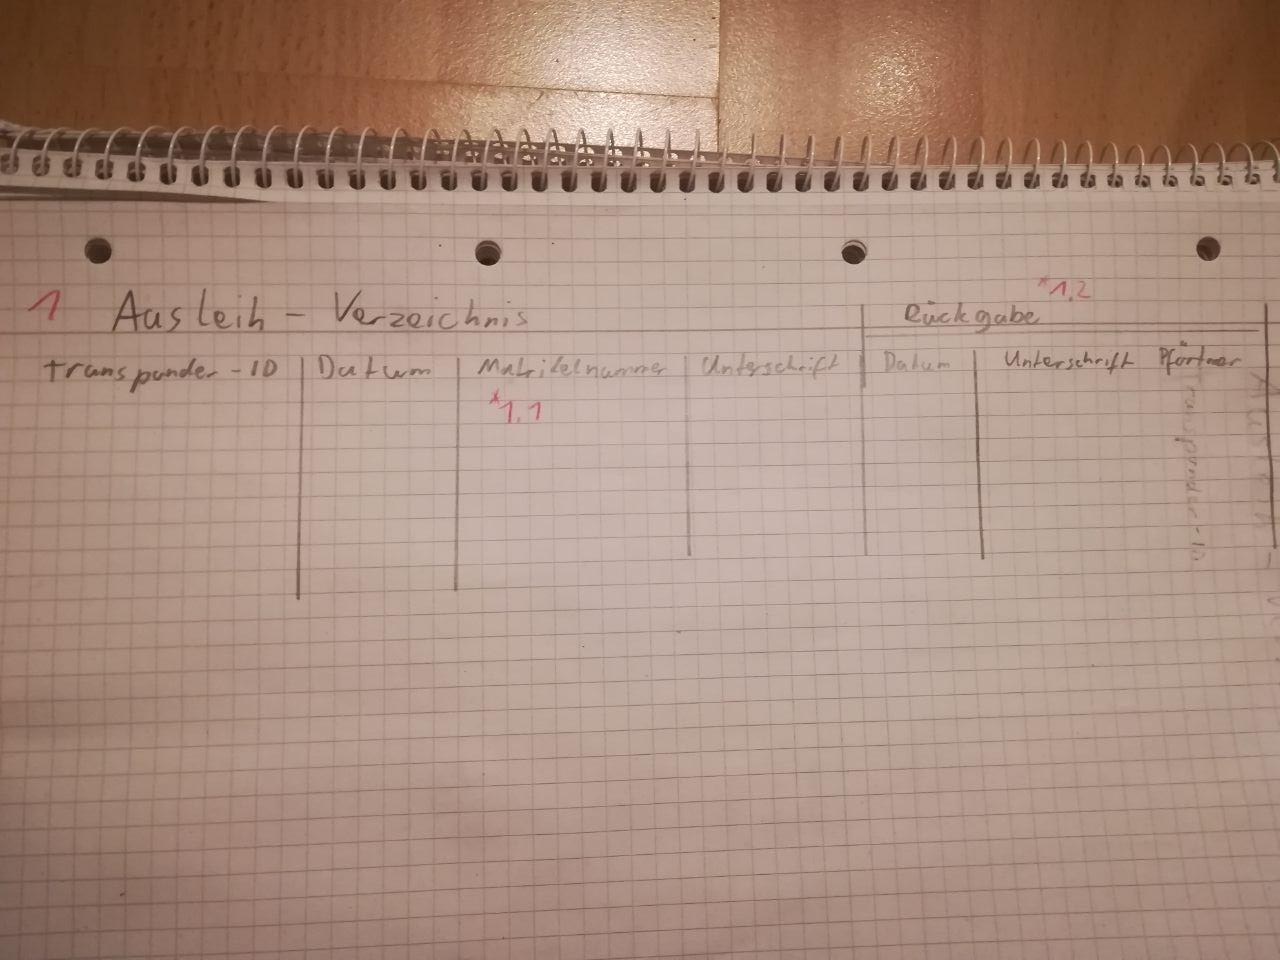 1 Ausleih - Verzeichnis
Rückgabe *1.2
transponder-ID Datum Matrikelnummer Unterschrift Datum Unterschrift Pförtner
*1.1
transponder-ID